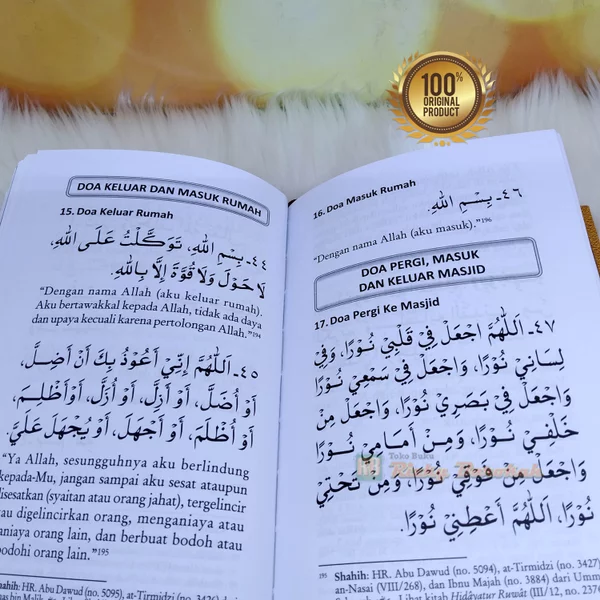 100%
ORIGINAL
PRODUCT
DOA KELUAR DAN MASUK RUMAH
15. Doa Keluar Rumah
٤٤- بِسْمِ اللهِ، تَوَكَّلْتُ عَلَى اللهِ،
لَا حَوْلَ وَلَا قُوَّةَ إِلَّا بِاللهِ.
“Dengan nama Allah (aku keluar rumah).
Aku bertawakkal kepada Allah, tidak ada daya
dan upaya kecuali karena pertolongan Allah.”194
٤٥- اَللَّهُمَّ إِنِّيْ أَعُوْذُ بِكَ أَنْ أَضِلَّ،
أَوْ أُضَلَّ، أَوْ أَزِلَّ، أَوْ أُزَلَّ، أَوْ أَظْلِمَ،
أَوْ أُظْلَمَ، أَوْ أَجْهَلَ، أَوْ يُجْهَلَ عَلَيَّ.
“Ya Allah, sesungguhnya aku berlindung
kepada-Mu, jangan sampai aku sesat ataupun
disesatkan (syaitan atau orang jahat), tergelincir
atau digelincirkan orang, menganiaya atau
dianiaya orang lain, dan berbuat bodoh atau
dibodohi orang lain.”195
Shahih: HR. Abu Dawud (no. 5095), at-Tirmidzi (no. 3426)
16. Doa Masuk Rumah
٤٦- بِسْمِ اللهِ.
“Dengan nama Allah (aku masuk).”196
DOA PERGI, MASUK
DAN KELUAR MASJID
17. Doa Pergi Ke Masjid
٤٧- اَللَّهُمَّ اجْعَلْ فِيْ قَلْبِيْ نُوْرًا، وَفِيْ
لِسَانِيْ نُوْرًا، وَاجْعَلْ فِيْ سَمْعِيْ نُوْرًا
وَاجْعَلْ فِيْ بَصَرِيْ نُوْرًا، وَاجْعَلْ مِنْ
خَلْفِيْ نُوْرًا، وَمِنْ أَمَامِيْ نُوْرًا
وَاجْعَلْ مِنْ فَوْقِيْ نُوْرًا، وَمِنْ تَحْتِيْ
نُوْرًا، اَللَّهُمَّ أَعْطِنِيْ نُوْرًا.
Toko Buku
195 Shahih: HR. Abu Dawud (no. 5094), at-Tirmidzi (no. 3427)
an-Nasai (VIII/268), dan Ibnu Majah (no. 3884) dari Umm
Lihat kitab Hidâyatur Ruwât (III/12, no. 2376